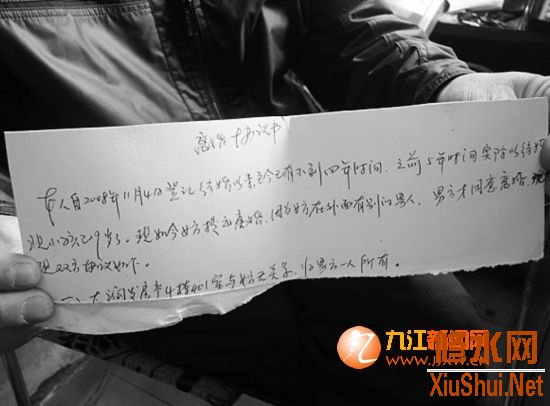 离婚协议书
本人自2008年11月4日登记结婚以来至今已有不到四年时间，之前5年时间实际以结婚
现小孩已9岁了。现如今女方提出离婚，因为女方在外面有别的男人，男方才同意离婚，现
现双方协议如下。
一、大润发房产4栋401室与女方无关系，归男方一人所有。
九江新闻网
www.jjxw.cn
修水网
XiuShui.Net